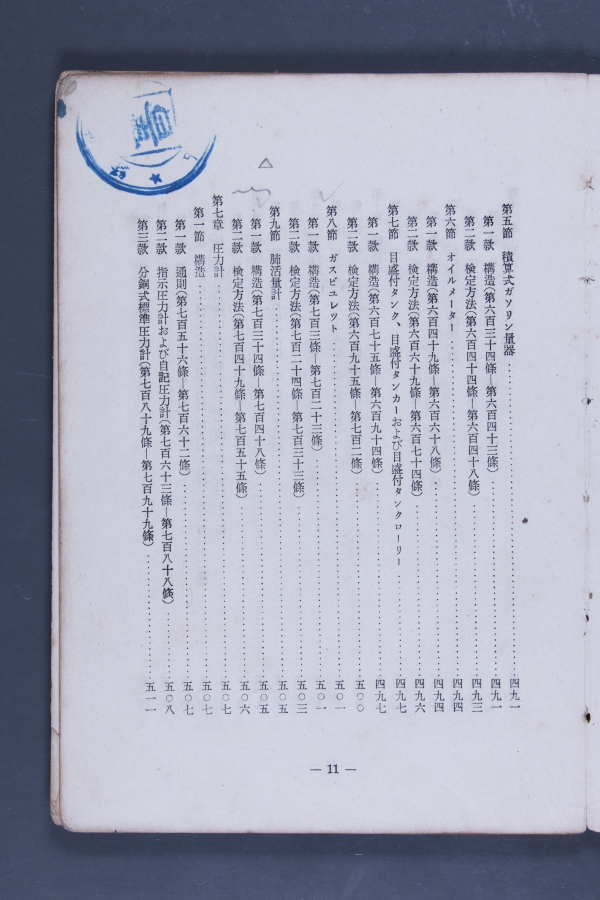 第五節 積算式ガソリン量器……四九一
第一款 構造(第六百三十四條―第六百四十三條)……四九一
第二款 検定方法(第六百四十四條―第六百四十八條)……四九三
第六節 オイルメーター……四九四
第一款 構造(第六百四十九條―第六百六十八條)……四九四
第二款 検定方法(第六百六十九條―第六百七十四條)……四九六
第七節 目盛付タンク、目盛付タンカーおよび目盛付タンクローリー……四九七
第一款 構造(第六百七十五條―第六百九十四條)……四九七
第二款 検定方法(第六百九十五條―第七百二條)……五〇〇
第八節 ガスビユレツト……五〇一
第一款 構造(第七百三條―第七百二十三條)……五〇一
第二款 検定方法(第七百二十四條―第七百三十三條)……五〇三
第九節 肺活量計……五〇五
第一款 構造(第七百三十四條―第七百四十八條)……五〇五
第二款 検定方法(第七百四十九條―第七百五十五條)……五〇六
第七章 圧力計……五〇七
第一節 構造……五〇七
第一款 通則(第七百五十六條―第七百六十二條)……五〇七
第二款 指示圧力計および自記圧力計(第七百六十三條―第七百八十八條)……五〇八
第三款 分銅式標準圧力計(第七百八十九條―第七百九十九條)……五一一
― 11 ―